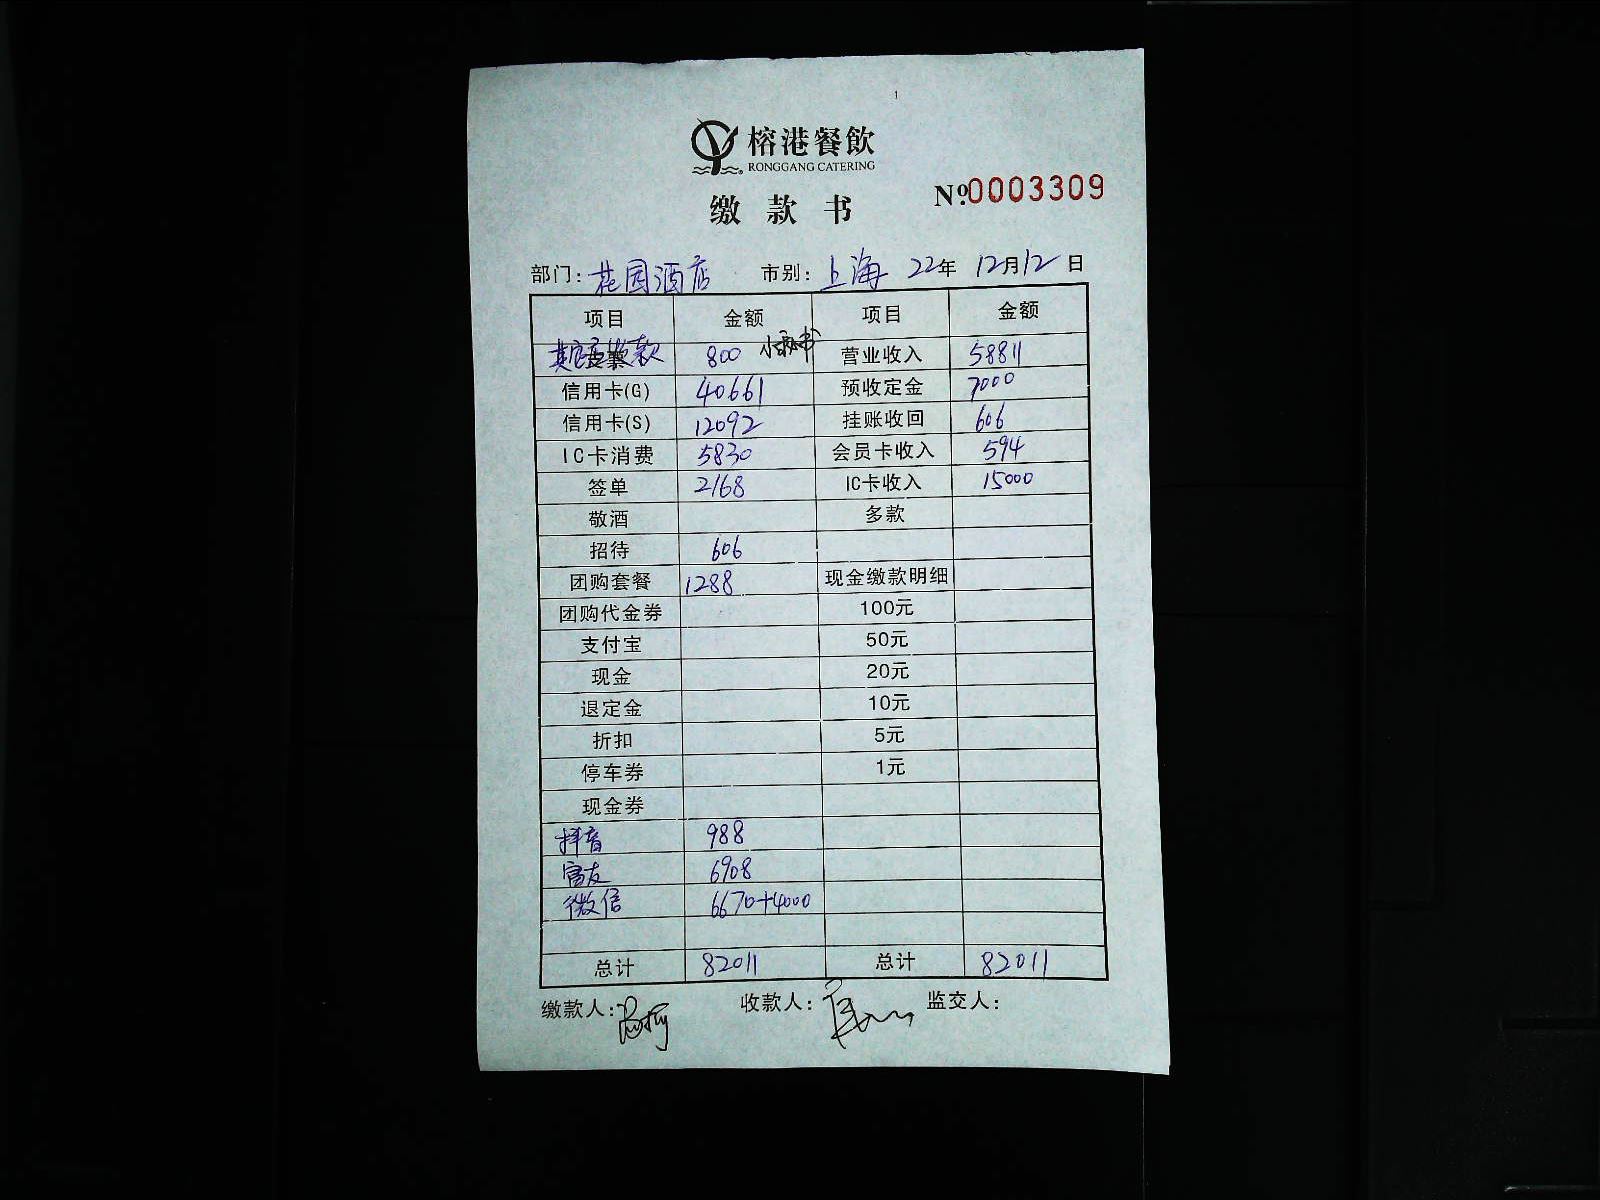 榕港餐飲
RONGGANG CATERING
缴款书
№0003309
部门：花园酒店 市别：上海 22年 12月12日
项目 金额 项目 金额
800 小红书 营业收入 58811
信用卡(G) 40661 预收定金 7000
信用卡(S) 12092 挂账收回 606
IC卡消费 5830 会员卡收入 594
签单 2168 IC卡收入 15000
敬酒 多款
招待 606
团购套餐 1288 现金缴款明细
团购代金券 100元
支付宝 50元
现金 20元
退定金 10元
折扣 5元
停车券 1元
现金券
抖音 988
富友 6908
微信 6670+4000
总计 82011 总计 82011
缴款人： 收款人： 监交人：